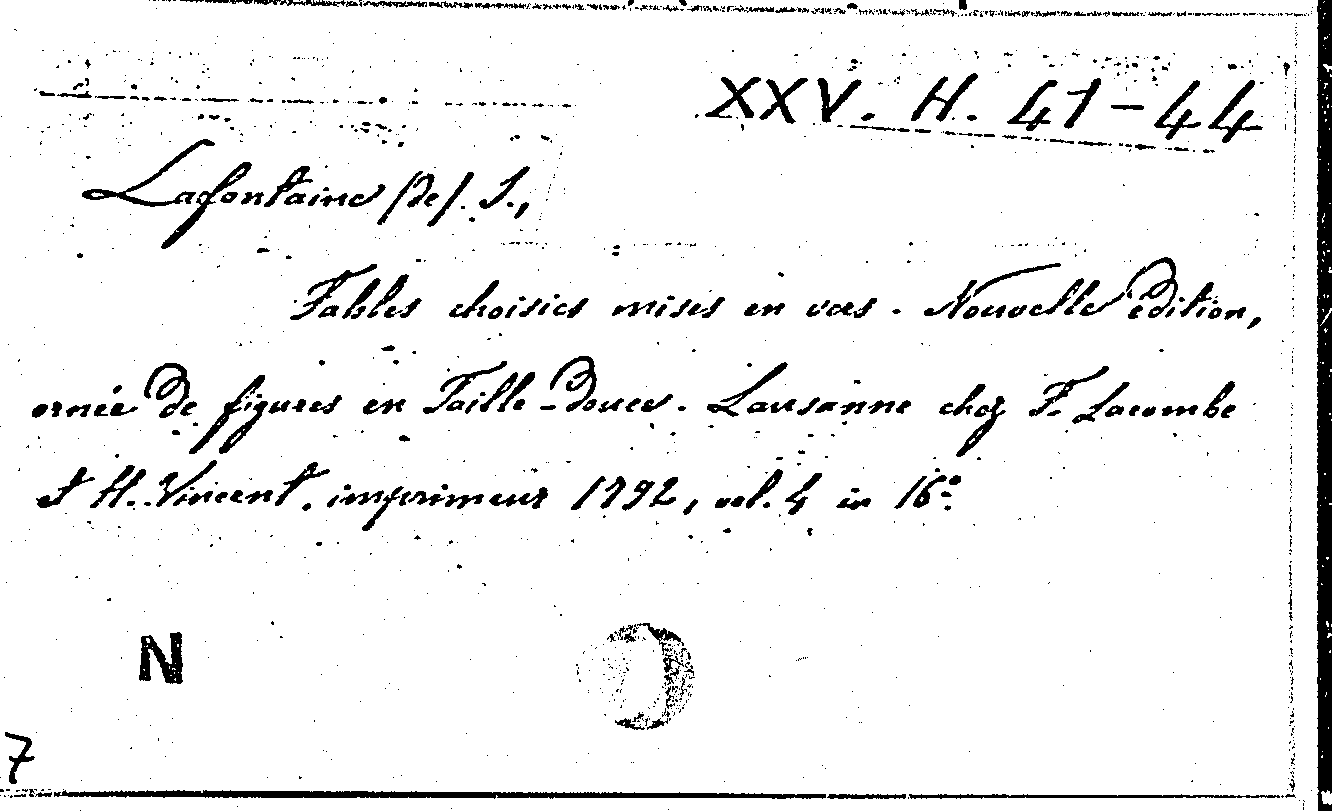 XXV. H. 41-44
Lafontaine (de). J.,
Fables choisies mises en vers. Nouvelle édition,
ornée de figures en Taille-douce. Lausanne chez F. Lacombe
et H. Vincent, imprimeur 1792, vol. 4 in 16°.
N
7